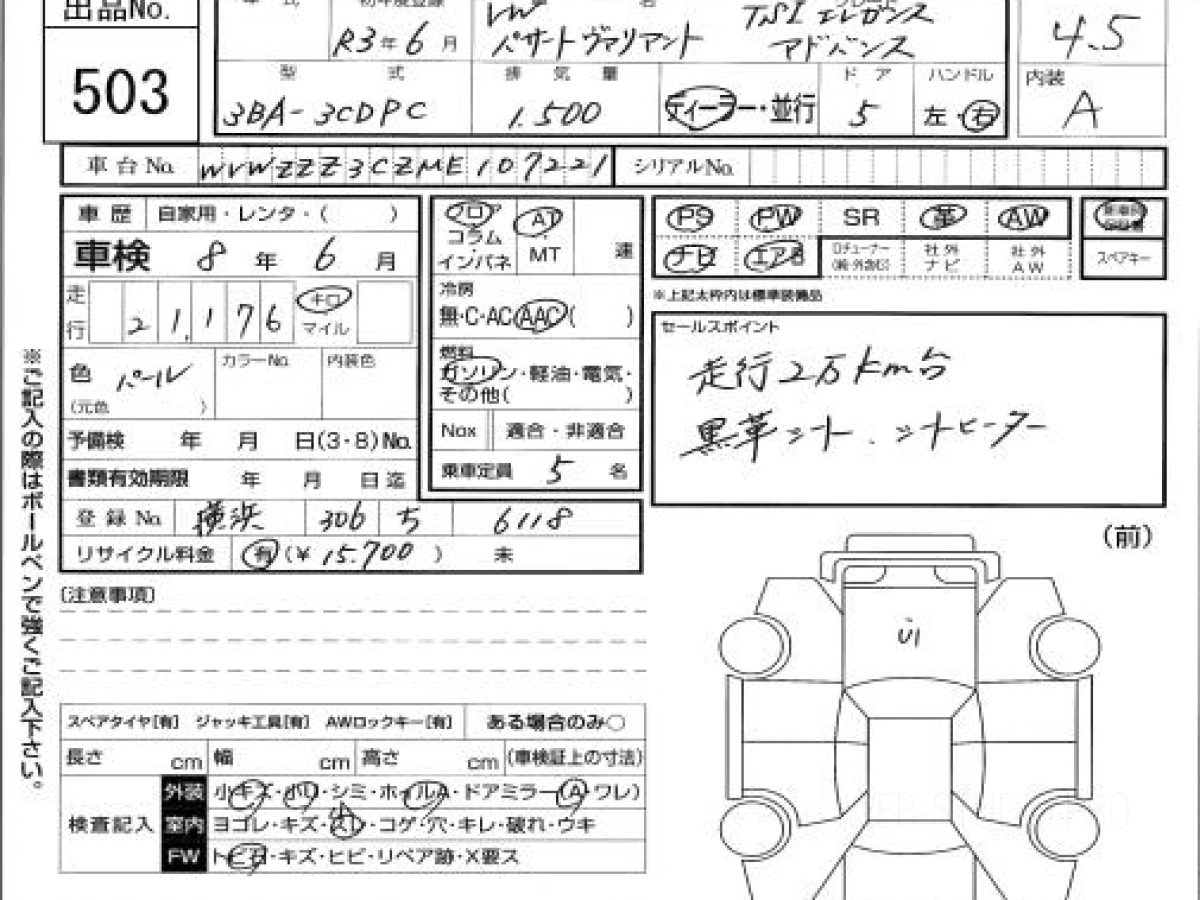 出品No.
503
年 式 初年度登録 名 グレード
R3年6月 VW TSI エレガンス
パサート ヴァリアント アドバンス
4.5
型 式 排 気 量 ドア ハンドル 内装
3BA-3CDPC 1.500 ディーラー・並行 5 左・右 A
車台No. WVWZZZ3CZME107221 シリアルNo.
車歴 自家用・レンタ・( )
車検 8年 6月
走行 21,176 キロ マイル
色 パール カラーNo. 内装色
(元色 )
予備検 年 月 日(3・8)No.
書類有効期限 年 月 日迄
登録No. 横浜 306 ち 6118
リサイクル料金 有(¥ 15.700 ) 未
フロア AT
コラム
インパネ MT 速
冷房
無・C・AC・AAC( )
燃料
ガソリン・軽油・電気・
その他( )
Nox 適合・非適合
乗車定員 5 名
PS PW SR 革 AW
ナビ エアB Dチューナー 社外ナビ 社外AW スペアキー
※上記太枠内は標準装備品
セールスポイント
走行2万km台
黒革シート、シートヒーター
※ご記入の際はボールペンで強くご記入下さい。
(前)
U1
〔注意事項〕
スペアタイヤ[有] ジャッキ工具[有] AWロックキー[有] ある場合のみ○
長さ cm 幅 cm 高さ cm (車検証上の寸法)
検査記入
外装 小キズ・小凹・シミ・ホイルA・ドアミラー(A・ワレ)
室内 ヨゴレ・キズ・スレ・コゲ・穴・キレ・破れ・ウキ
小
FW トビ石・キズ・ヒビ・リペア跡・X要ス